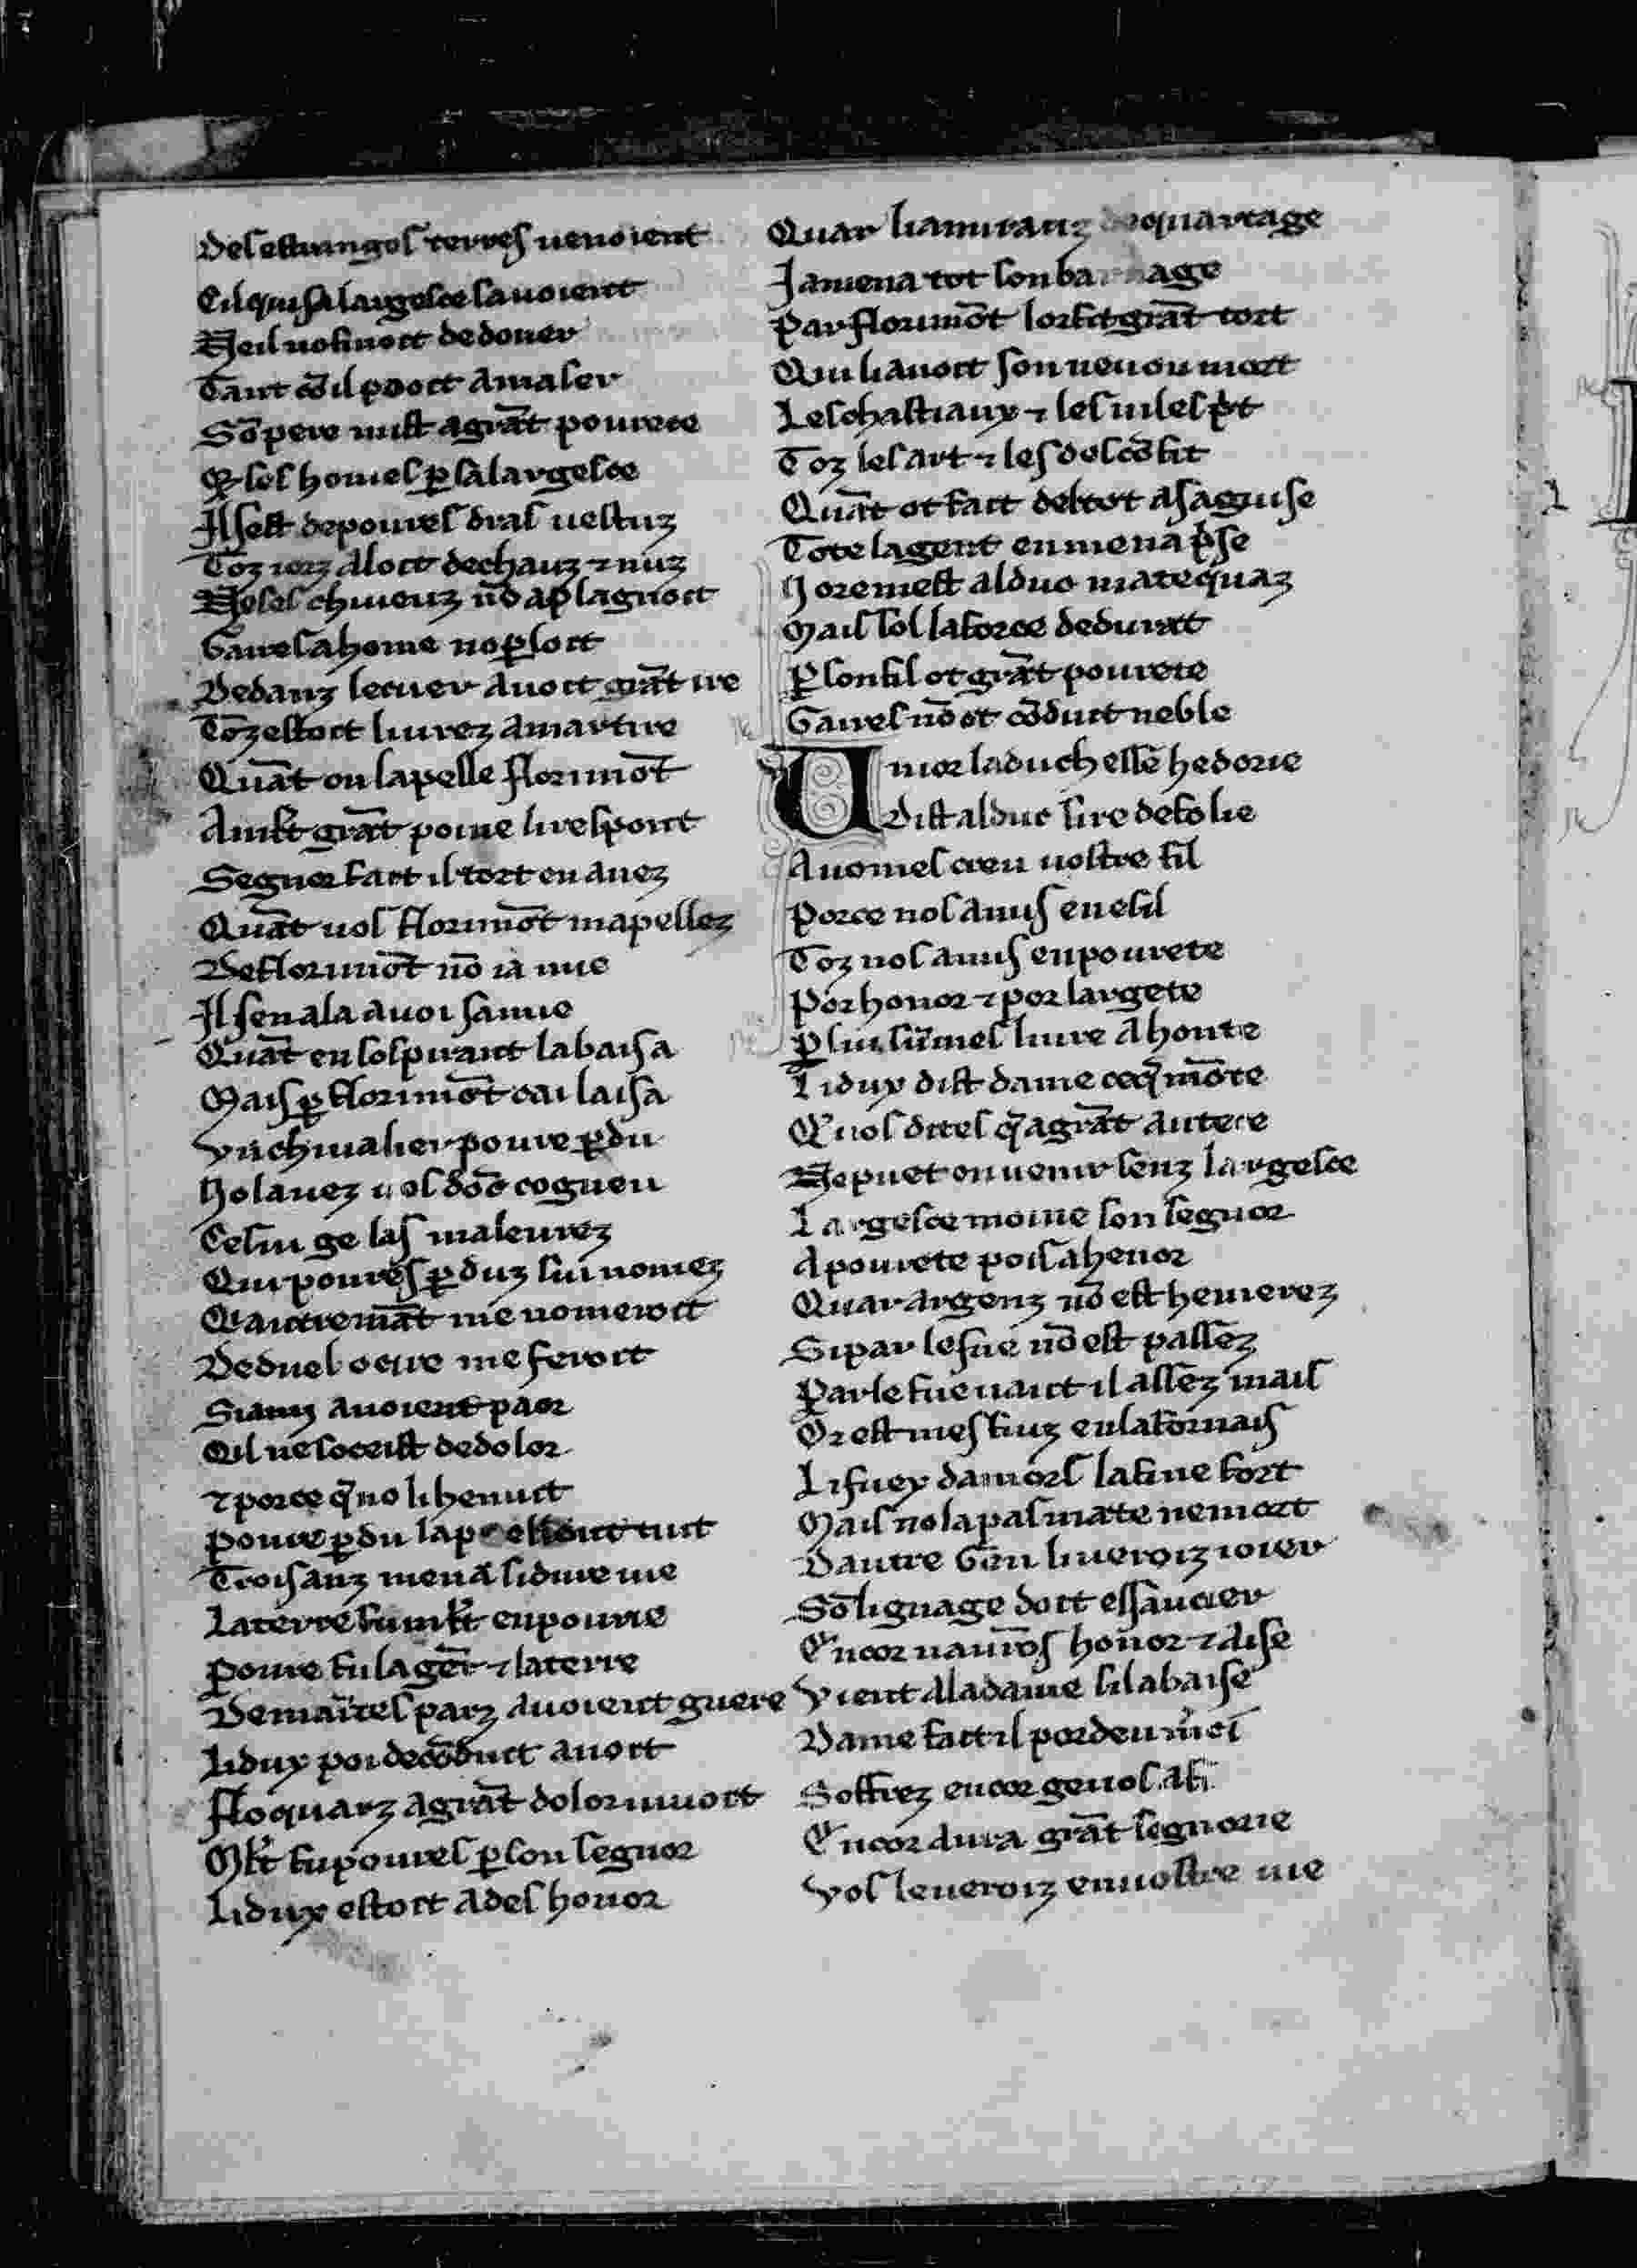 Des estranges terres uenoient
Cil qui sa largesce sauoient
Ne il no finoit de doner
Tant cō il pooit amaser
Sō pere mist a grāt pourete
⁊ ses homes ꝑ sa largesce
Il sest de poures dras uestuz
Toz iorz aloit dechauz ⁊ nuz
Noses chiuenz nō aplagnoit
Gaires a home no ꝑloit
Dedanz le cuer auoit grāt ire
Toz estoit liurez a martire
Quāt on lapelle florimōt
A mlt grāt poine li respont
Segnor fait il tort en auez
Quāt uos florimōt mapellez
De florimōt nō ia mie
Il sen ala auoi samie
Quāt en sospirant la baisa
Mais ꝑ florimōt cai laisa
Vn chiualier poure ꝑdu
No lauez uos dōc cogneu
Celui ge las maleurez
Qui poures ꝑduz sui nomez
Qi autremāt me nomeroit
De duel ocire me feroit
Si amj auoient paor
Qil ne soceist de dolor
⁊ por ce q̄ no li henuit
Poure ꝑdu lapelloient tuit
Trois anz mena si dure uie
La terre fu mlt enpourie
Poure fu la gēt ⁊ la terre
De maītes parz auoient guere
Li dux poi de cōduit auoit
Floquarz a grāt dolor uiuoit
Mlt fu poures ꝑ son segnor
Li dux estoit a deshonor
Quar li amiranz de quartage
I amena tot son barnage
Par florimōt lor fit grāt tort
Qui li auoit son neuou mort
Les chastiaux ⁊ les uiles p̄t
Toz les art ⁊ les descōfit
Quāt ot fait de tot a sa guise
Tote la gent en mena p̄se
No remest al duc mateq̄az
Mais sol la force de durat
ꝑ son fil ot grāt pourete
Gaires nō ot cōduit ne ble
A mor la duchesse hedorie
Dist al duc sire de folie
Auomes creu uostre fil
Por ce nos a mis en esil
Toz nos a mis en pourete
Por honor ⁊ por largete
ꝑ lui sūmes liure a honte
Li dux dist dame ce q̄ mōte
Q uos dites q̄ a grāt autece
Ne puet on uenir senz largesce
Largesce moine son segnor
A pourete pois a henor
Quar argenz nō est hemerez
Si par le fue nō est passez
Par le fue uait il assez mais
Or est mes fiuz en la fornais
Li fuex damors lafine fort
Mais no la pas mate ne mort
Dautre gēu li ueroiz ioier
Sō lignage doit essaucier
Encor naurōs honor ⁊ aise
Vient a la dame si la baise
Dame fait il por deu m̄ci
Soffrez encor ge uos afi
Encor aura grāt segnorie
Vos le ueroiz en uostre uie